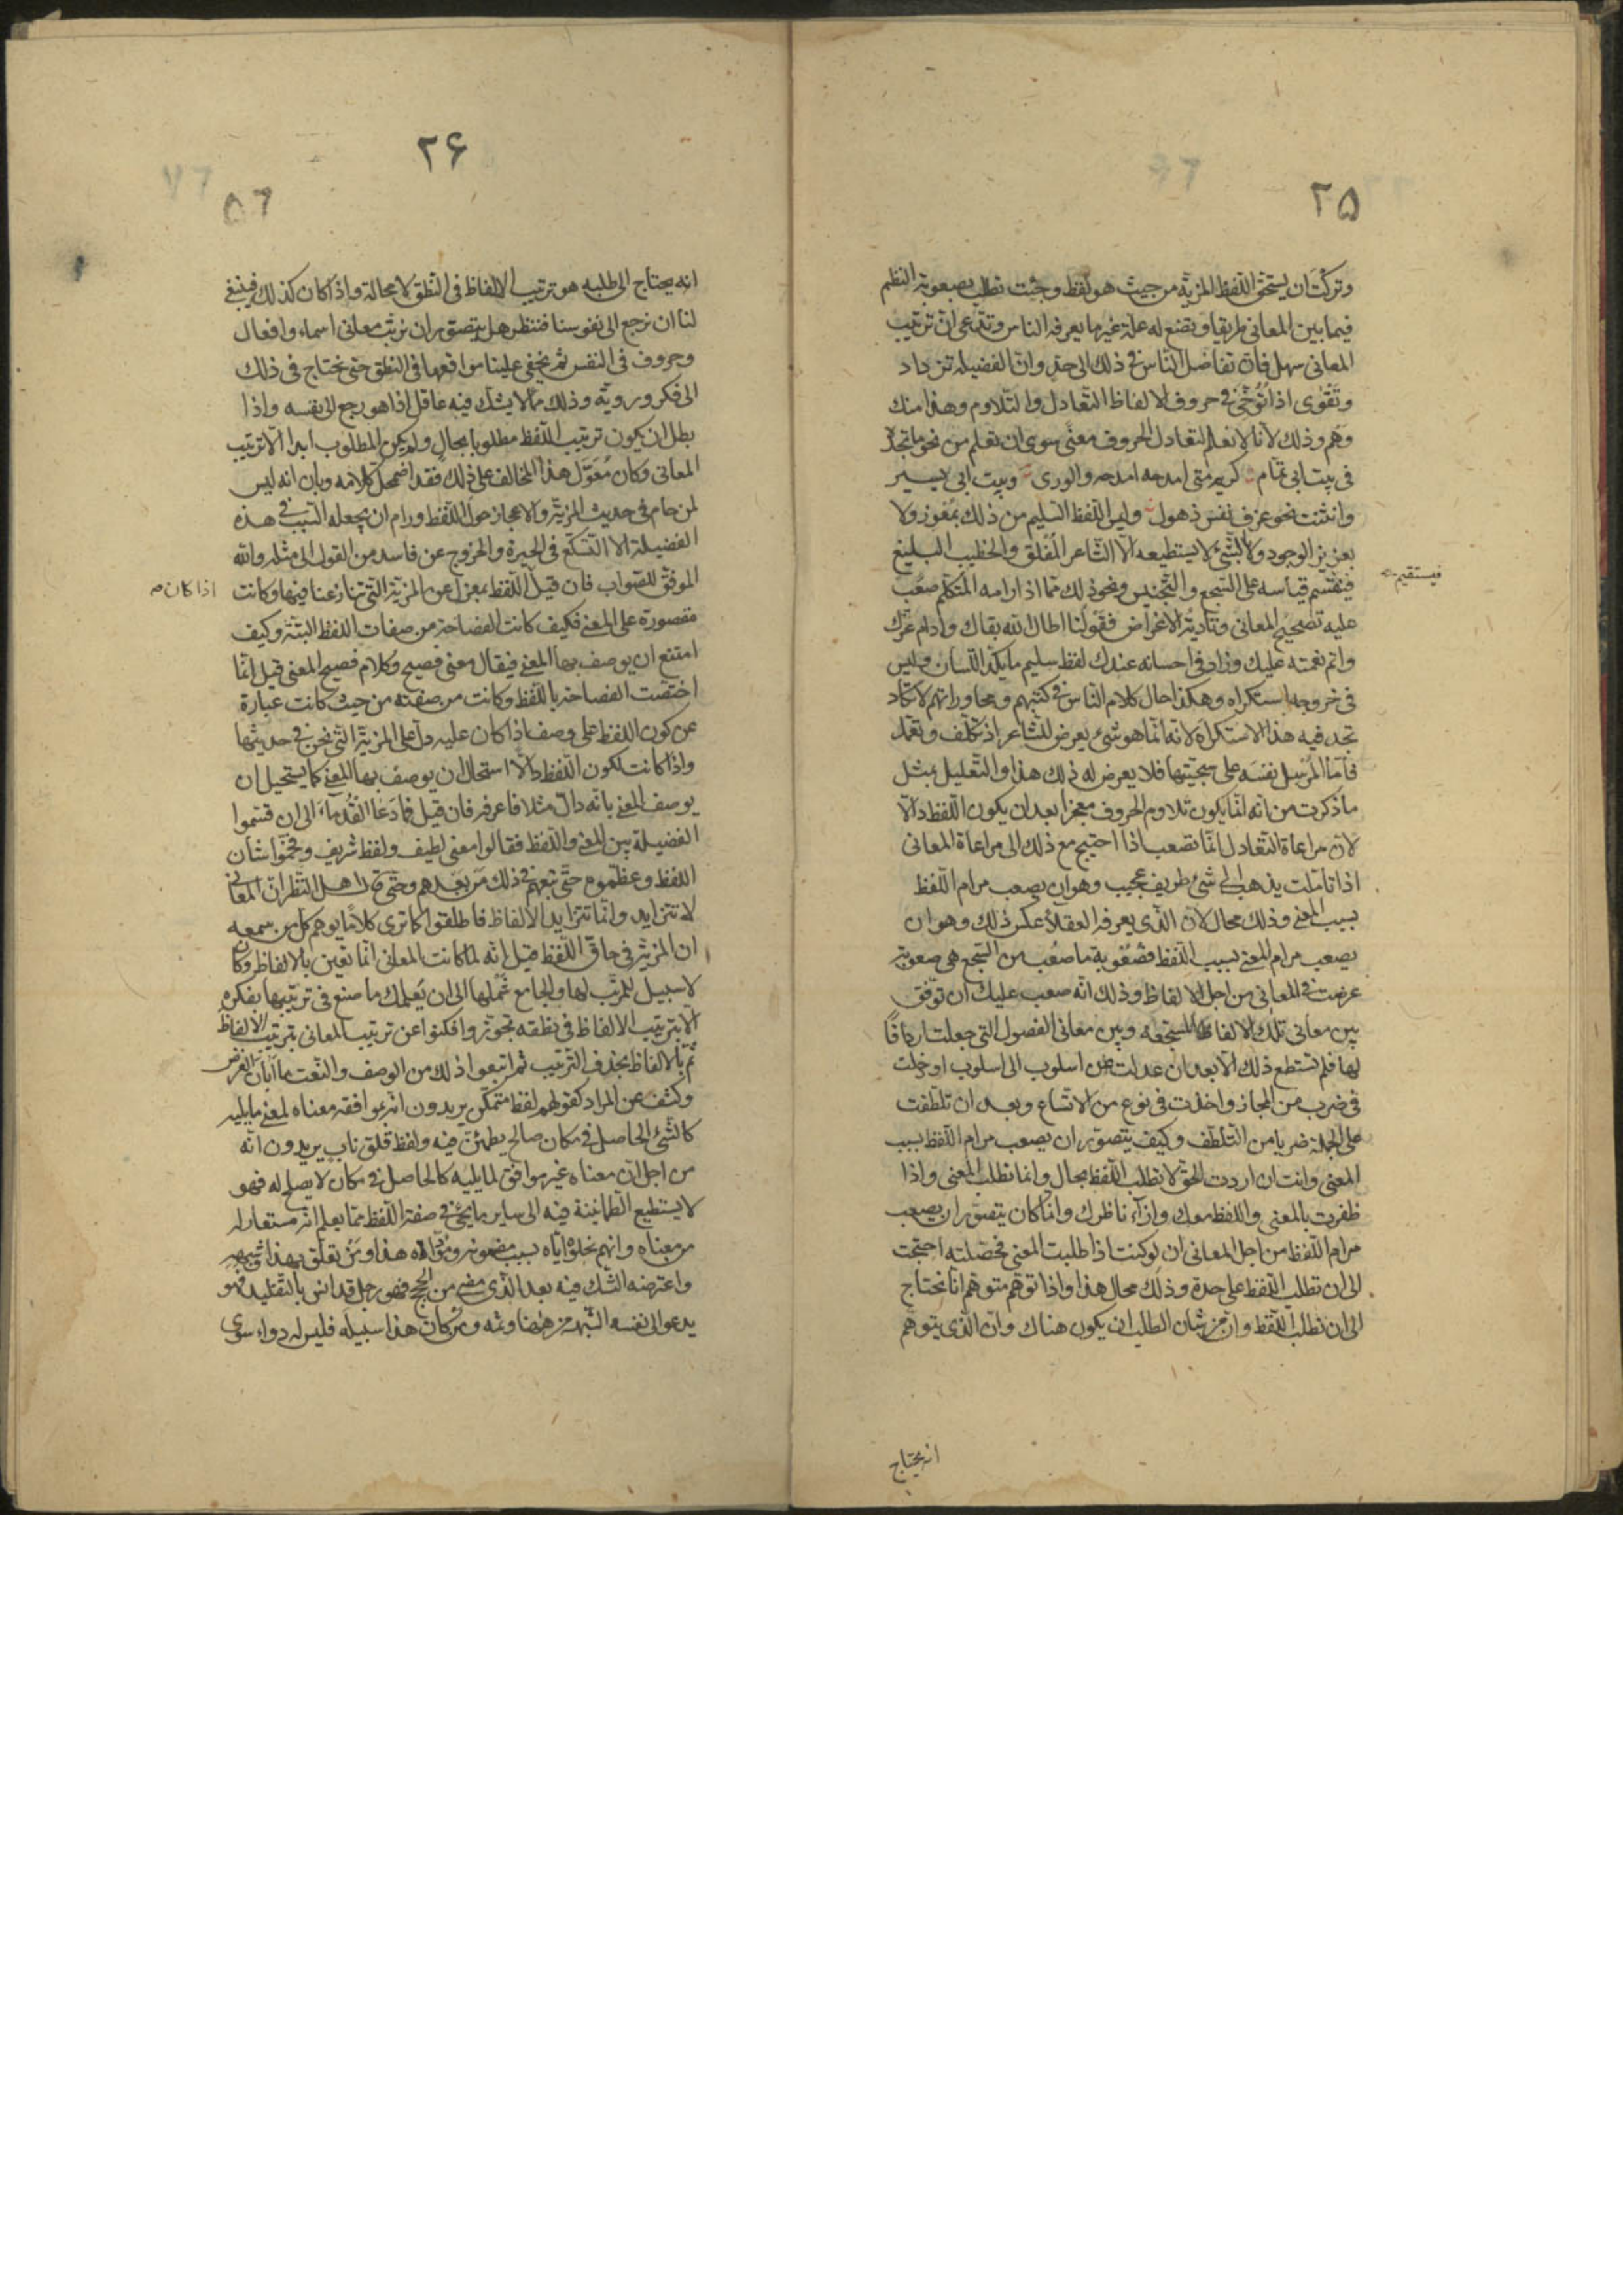 ۲۵
وتركت ان يستحق اللفظ المزية من حيث هو لفظ وجئت تطلب بصعوبة النظم
فيما بين المعاني طريقا وتضع له علة غير ما يعرفه الناس وتدعى ان ترتيب
المعاني سهل فان تفاضل الناس في ذلك الى حد وان الفضيلة تزداد
وتقوى اذا توخى في حروف الالفاظ التعادل والتلاوم وهذا منك
وهم وذلك لأنا لا نعلم لتعادل الحروف معنى سوى ان تعلم من نحو ما تجد
في بيت ابي تمام كريم متى امدحه امدحه والورى وبيت ابي يسير
وانثنت نحو عزف نفس ذهول وليس اللفظ السليم من ذلك بمعوز ولا
بعزيز الوجود ولا بالشئ لا يستطيعه الا الشاعر المفلق والخطيب البليغ
فيستقيم
قياسه على السجع والتجنيس ونحو ذلك مما اذا رامه المتكلم صعب
عليه تصحيح المعاني وتأدية الاغراض فقولنا اطال الله بقاك وادام عزك
واتم نعمته عليك وزاد في احسانه عندك لفظ سليم ما يكد اللسان وليس
في خروجه استكراه وهكذا حال كلام الناس في كتبهم ومحاوراتهم لا تكاد
تجد فيه هذا الاستكراه لانه انما هو شئ يعرض للشاعر اذ تكلف وتعمل
فاما المرسل نفسه على سجيتها فلا يعرض له ذلك هذا والتعليل بمثل
ما ذكرت من انه انما يكون تلاوم الحروف معجزا بعد ان يكون اللفظ دالا
لان مراعاة التعادل انما تصعب اذا احتيج مع ذلك الى مراعاة المعاني
اذا تاملت يذهب الى شئ طريف عجيب وهو ان يصعب مرام اللفظ
بسبب المعنى وذلك محال لان الذي يعرفه العقلاء عكس ذلك وهو ان
يصعب مرام المعنى بسبب اللفظ فصعوبة ما صعب من السجع هي صعوبة
عرضت في المعاني من اجل الالفاظ وذلك انه صعب عليك ان توفق
بين معاني تلك الالفاظ المسجعة وبين معاني الفصول التي جعلت اردافا
لها فلم تستطع ذلك الا بعد ان عدلت من اسلوب الى اسلوب او دخلت
في ضرب من المجاز واخذت في نوع من الاتساع وبعد ان تلطفت
على الجملة ضربا من التلطف وكيف يتصور ان يصعب مرام اللفظ بسبب
المعنى وانت ان اردت الحق لا تطلب اللفظ بحال وانما تطلب المعنى واذا
ظفرت بالمعنى واللفظ معك وازآء ناظرك وانما كان يتصور ان يصعب
مرام اللفظ من اجل المعاني ان لو كنت اذا طلبت المعنى فحصلته احتجت
الى ان تطلب اللفظ على حدة وذلك محال هذا واذا توهم متوهم انا نحتاج
الى ان نطلب اللفظ وان من شان الطلب ان يكون هناك وان الذي يتوهم
انه يحتاج
۲۶
انه يحتاج الى طلبه هو ترتيب الالفاظ في النطق لا محالة واذا كان كذلك فينبغي
لنا ان نرجع الى نفوسنا فننظر هل يتصور ان نرتب معاني اسماء وافعال
وحروف في النفس ثم يخفى علينا مواقعها في النطق حتى نحتاج في ذلك
الى فكر وروية وذلك مما لا يشك فيه عاقل اذا هو رجع الى نفسه واذا
بطل ان يكون ترتيب اللفظ مطلوبا بحال ولم يكن المطلوب ابدا الا ترتيب
المعاني وكان معول هذا المخالف على ذلك فقد اضمحل كلامه وبان انه ليس
لمن حام في حديث المزية والاعجاز حول اللفظ ورام ان يجعله السبب في هذه
الفضيلة الا التسكع في الحيرة والخروج عن فاسد من القول الى مثله والله
الموفق للصواب فان قيل اذا كان اللفظ بمعزل عن المزية التي تنازعنا فيها وكانت
مقصورة على المعنى فكيف كانت الفصاحة من صفات اللفظ البتة وكيف
امتنع ان يوصف بها المعنى فيقال معنى فصيح وكلام فصيح المعنى قيل انما
اختصت الفصاحة باللفظ وكانت من صفته من حيث كانت عبارة
عن كون اللفظ على وصف اذا كان عليه دل على المزية التي نحن في حديثها
واذا كانت لكون اللفظ دالا استحال ان يوصف بها المعنى كما يستحيل ان
يوصف المعنى بانه دال مثلا فاعرفه فان قيل فما دعا القدماء الى ان قسموا
الفضيلة بين المعنى واللفظ فقالوا معنى لطيف ولفظ شريف وفخموا شان
اللفظ وعظموه حتى تبعهم في ذلك من بعدهم وحتى قال اهل النظر ان المعاني
لا تتزايد وانما تتزايد الالفاظ فاطلقوا كما ترى كلاما يوهم كل من سمعه
ان المزية في حاق اللفظ قيل انه لما كانت المعاني انما تتبين بالالفاظ وكان
لا سبيل للمرتب لها والجامع شملها الى ان يعلمك ما صنع في ترتيبها بفكره
الا بترتيب الالفاظ في نطقه تجوزوا فكنوا عن ترتيب المعاني بترتيب الالفاظ
ثم بالالفاظ بحذف الترتيب ثم اتبعوا ذلك من الوصف والنعت ما ابان الغرض
وكشف عن المراد كقولهم لفظ متمكن يريدون انه بموافقة معناه لمعنى ما يليه
كالشئ الحاصل في مكان صالح يطمئن فيه ولفظ قلق ناب يريدون انه
من اجل ان معناه غير موافق لما يليه كالحاصل في مكان لا يصلح له فهو
لا يستطيع الطمانينة فيه الى ساير ما يجئ في صفة اللفظ مما يعلم انه مستعار له
من معناه وانهم نحلوه اياه بسبب مضمونه ومؤداه هذا ومن تعلق بهذا وشبهه
واعترضه الشك فيه بعد الذي مضى من الحجج فهو رجل قد انس بالتقليد فهو
يدعو الى نفسه الشبهة من هنا وثمه ومن كان هذا سبيله فليس له دواء سوى